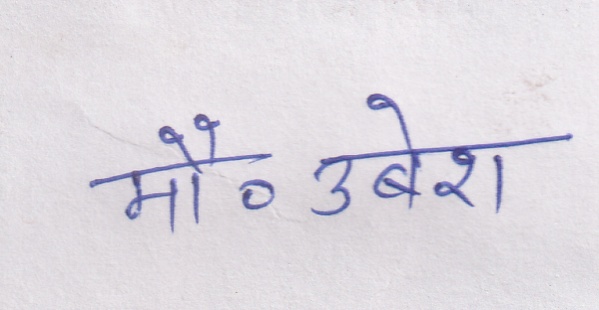 मौ० उबेश